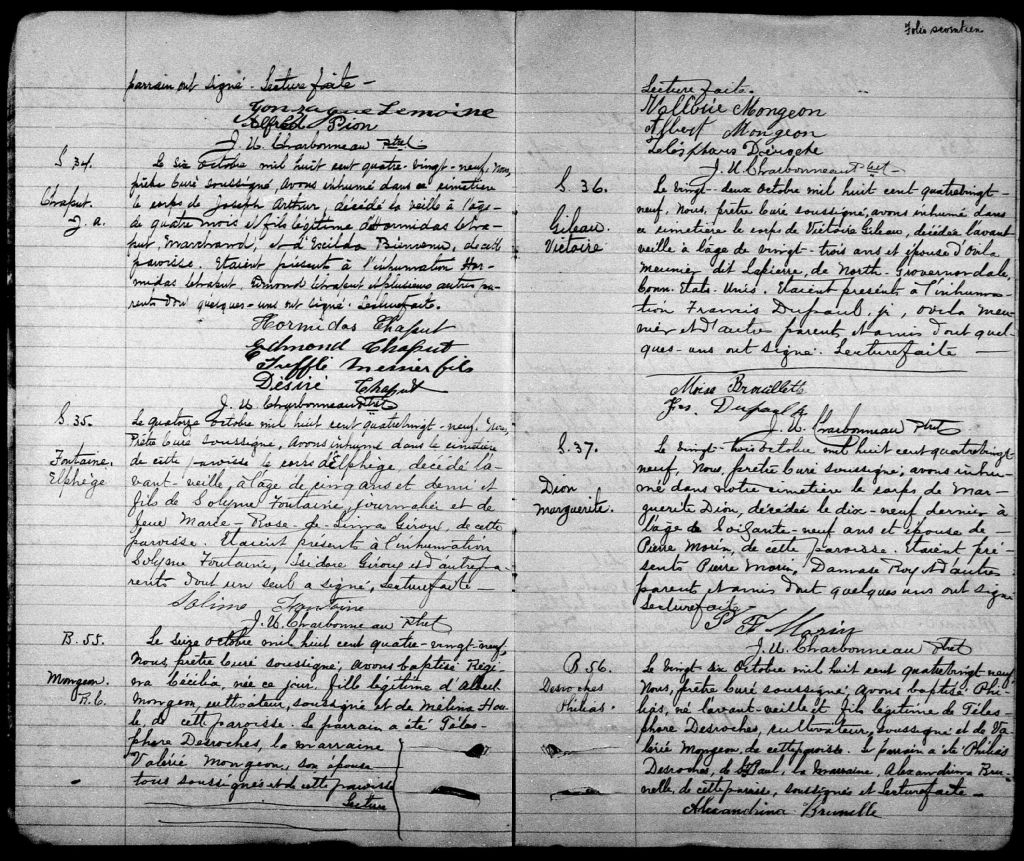 parrain ont signé. Lecture faite -
Gonzague Lemoine
Alfred Pion
J. U. Charbonneau Ptre
S. 34.
Chaput.
J. A.
Le six octobre mil huit cent quatre-vingt-neuf, Nous,
Prêtre Curé soussigné, avons inhumé dans ce cimetière
le corps de Joseph Arthur, décédé la veille à l'âge
de quatre mois et fils légitime d'Hormidas Cha-
put, Marchand, et d'Exilda Bienvenu, de cette
paroisse. Etaient présents à l'inhumation Hor-
midas Chaput, Edmond Chaput et plusieurs autres pa-
rents dont quelques-uns ont signé. Lecture faite.
Hormidas Chaput
Edmond Chaput
Trefflé Messier fils
Désiré Chaput
J. U. Charbonneau Ptre
S. 35.
Fontaine.
Elphège
Le quatorze octobre mil huit cent quatrevingt-neuf, Nous,
Prêtre Curé soussigné, avons inhumé dans le cimetière
de cette paroisse le corps d'Elphège, décédé l'a-
vant-veille, à l'âge de cinq ans et demi et
fils de Solyme Fontaine, journalier et de
feue Marie-Rose-de-Lima Giroux, de cette
paroisse. Etaient présents à l'inhumation
Solyme Fontaine, Isidore Giroux et d'autres pa-
rents dont un seul a signé, Lecture faite -
Solime Fontaine
J. U. Charbonneau Ptre
B. 55.
Mongeon.
R. C.
Le seize octobre mil huit cent quatre-vingt-neuf,
Nous, prêtre Curé soussigné, avons baptisé Régi-
na Cécilia, née ce jour, fille légitime d'Albert
Mongeon, cultivateur, soussigné et de Mélina Hou-
le, de cette paroisse. Le parrain a été Téles-
phore Desroches, la marraine
Valérie Mongeon, son épouse
tous soussignés et de cette paroisse
Lecture
Folio seventeen
Lecture faite.
Valérie Mongeon
Albert Mongeon
Telesphore Deroche
J. U. Charbonneau Ptre -
S. 36.
Gileau.
Victoire
Le vingt-deux octobre mil huit cent quatrevingt-
neuf. Nous, prêtre Curé soussigné, avons inhumé dans
ce cimetière le corps de Victoire Gileau, décédée l'avant
veille à l'âge de vingt-trois ans et épouse d'Ovila
Meunier dit Lapierre, de North-Grovernordale,
Conn. Etats-Unis. Etaient présents à l'inhuma-
tion Francis Dupaul, jr, Ovila Meu-
nier et d'autre parents et amis dont quel-
ques-uns ont signé. Lecture faite -
Moise Brouillett
Frs. Dupaul
J. U. Charbonneau Ptre
S. 37.
Dion
Marguerite.
Le vingt-trois octobre mil huit cent quatrevingt
neuf, Nous, prêtre Curé soussigné, avons inhu-
mé dans notre cimetière le corps de Mar-
guerite Dion, décédée le dix-neuf dernier à
l'âge de soixante-neuf ans et épouse de
Pierre Morin, de cette paroisse. Etaient pré-
sents Pierre Morin, Damase Roy et d'autres
parents et amis dont quelques uns ont signé
Lecture faite
P F Morin
J. U. Charbonneau Ptre
B 56.
Desroches
Philias.
Le vingt six octobre mil huit cent quatrevingt neuf,
Nous, prêtre Curé soussigné, avons baptisé Phi-
lias, né l'avant-veille et fils légitime de Téles-
phore Desroches, cultivateur, soussigné et de Va-
lérie Mongeon, de cette paroisse. Le parrain a été Philias
Desroches, de St Paul, la marraine, Alexandrina Bru-
nelle, de cette paroisse, soussignés et Lecture faite -
Alexandrina Brunelle